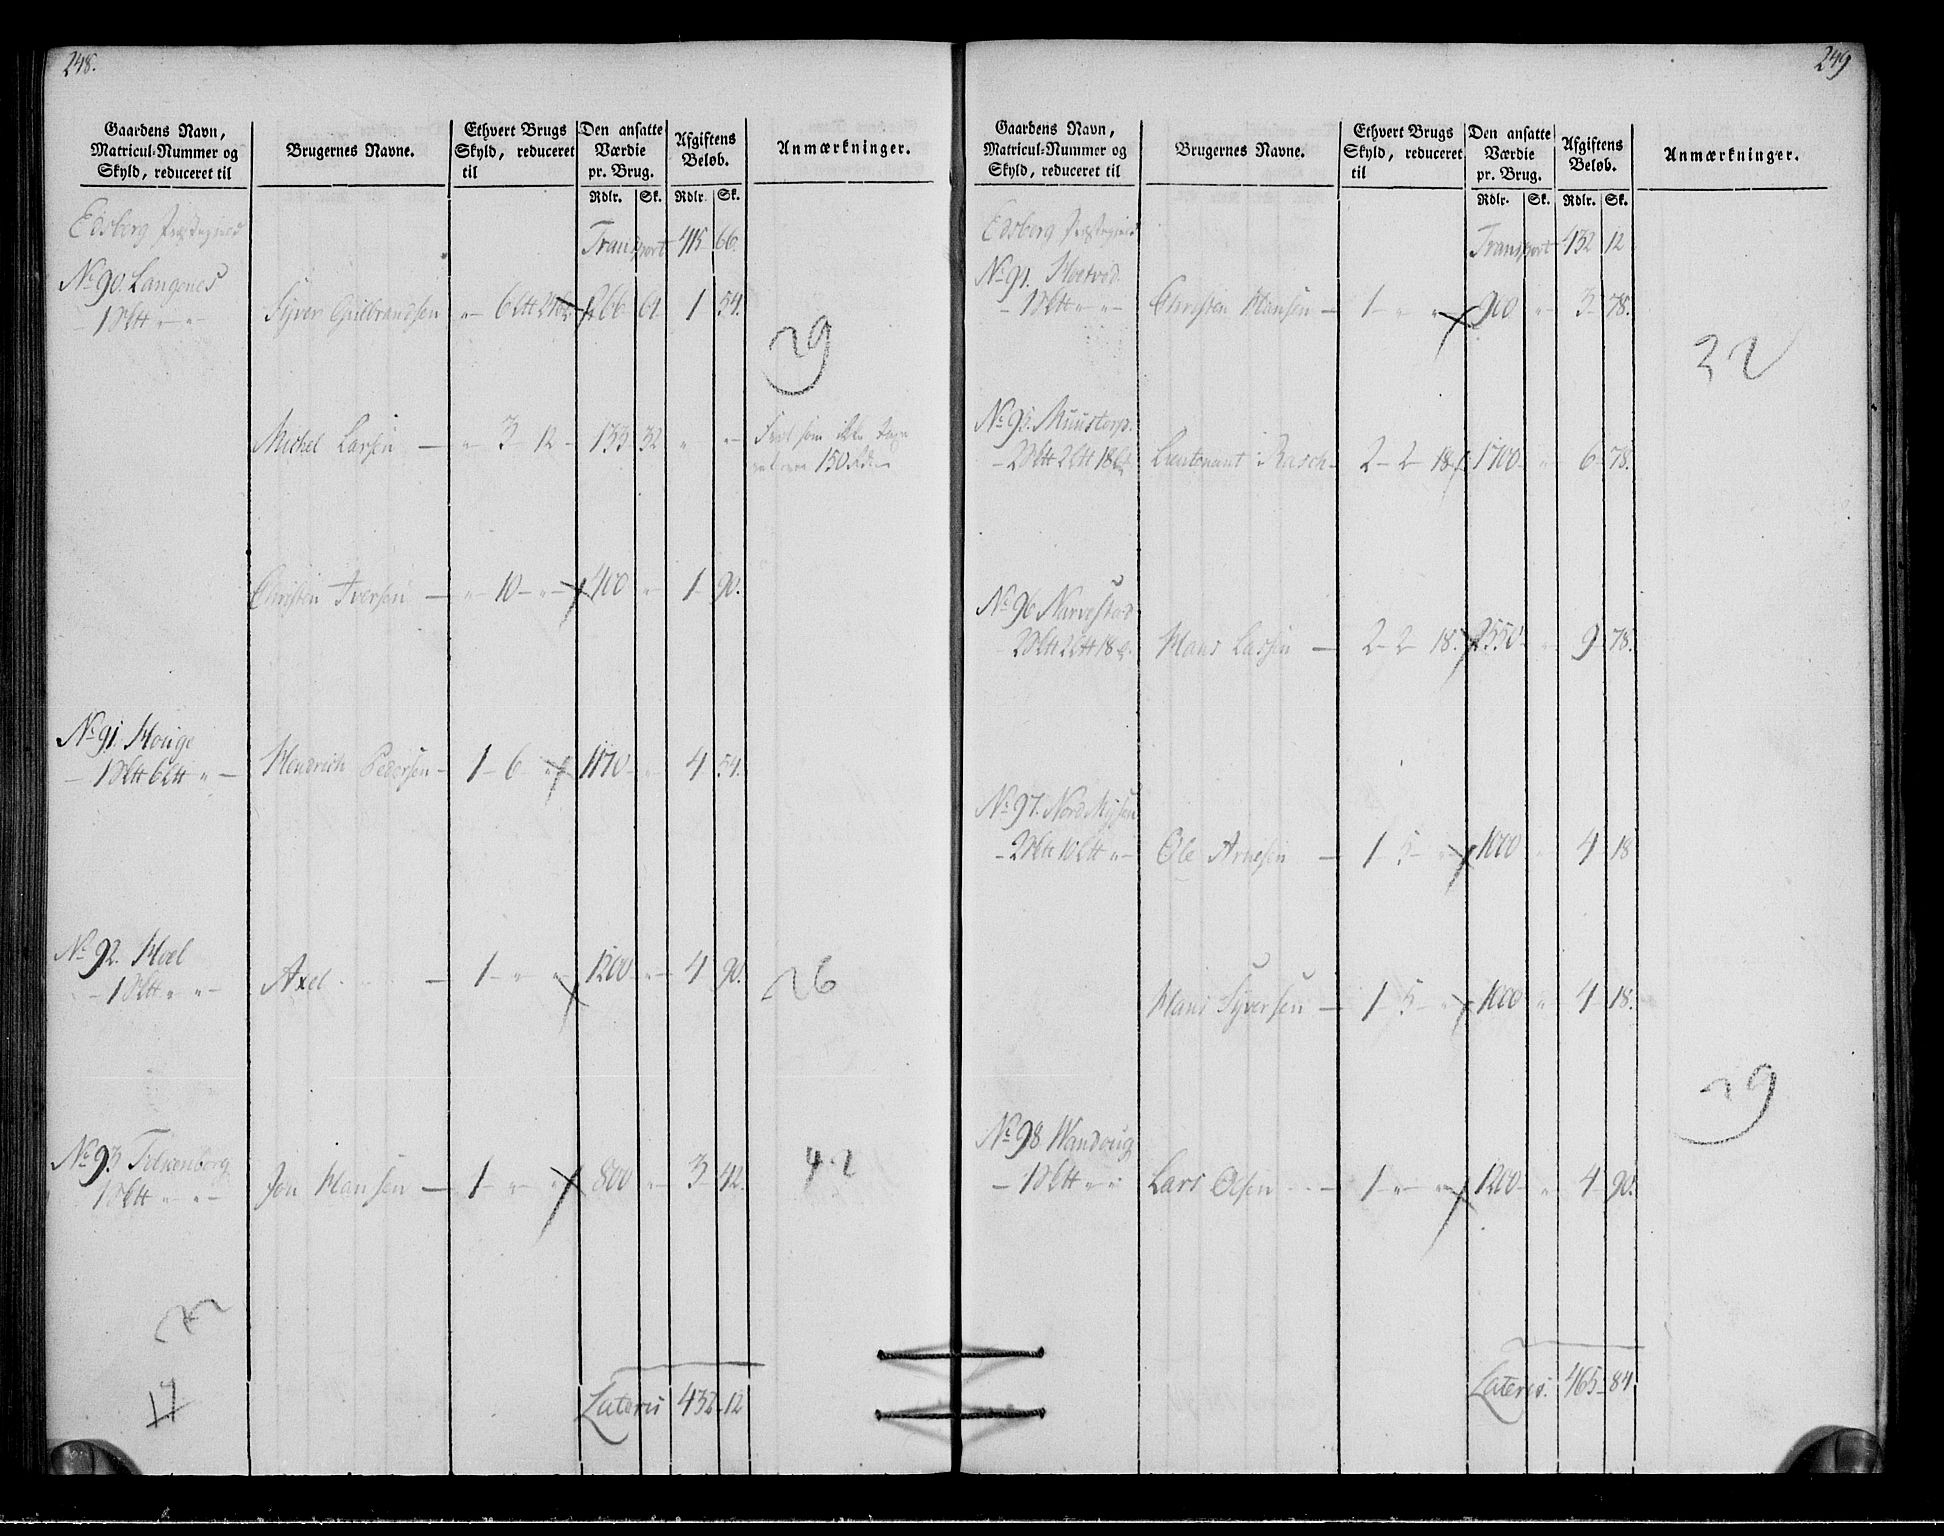 248.
Gaardens Navn, Matricul-Nummer og Skyld, reduceret til
Brugernes Navne.
Ethvert Brugs Skyld, reduceret til
Den ansatte Værdie pr. Brug.
Afgiftens Beløb.
Anmærkninger.
Rdlr. Sk. Rdlr. Sk.
Edsberg Præstegield Transport 415 66.
No 90. Langenes
1 Sktt " " Syver Gulbrandsen " 6 266 64 1 54.
29
Michel Larsen " 3 12 133 32 " " som ikke
150 Rd
Christen Iversen " 10 " 400 " 1 90.
No 91. Houge
1 Sktt 6 Ltt " Hendrich Pedersen 1 6 " 1170 " 4 54.
No 92. Hoel
1 Sktt " " Axel 1 " " 1200 " 4 90.
26
No 93 Tilkenborg
1 Sktt " " Jon Hansen 1 " " 800 " 3 42.
42
17
Lateris 432 12
249
Gaardens Navn, Matricul-Nummer og Skyld, reduceret til
Brugernes Navne.
Ethvert Brugs Skyld, reduceret til
Den ansatte Værdie pr. Brug.
Afgiftens Beløb.
Anmærkninger.
Rdlr. Sk. Rdlr. Sk.
Edsberg Præstegield Transport 432 12
1 Sktt " " Christen Hansen 1 " " 900 " 3 78.
32
Muustorp.
2 Sktt 2 Ltt 18 Lieutenant Rasch 2 2 18 1700 " 6 78.
No 96 Narvestad
2 Sktt 2 Ltt 18 Hans Larsen 2 2 18. 2550 " 9 78.
No 97. Nord Mysen
2 Sktt 10 Ltt " Ole Arnesen 1 5 " 1000 " 4 18
Hans Syversen 1 5 " 1000 " 4 18.
29
No 98 Wandoug
1 Sktt " " Lars Olsen 1 " " 1200 " 4 90.
Lateris. 465 84